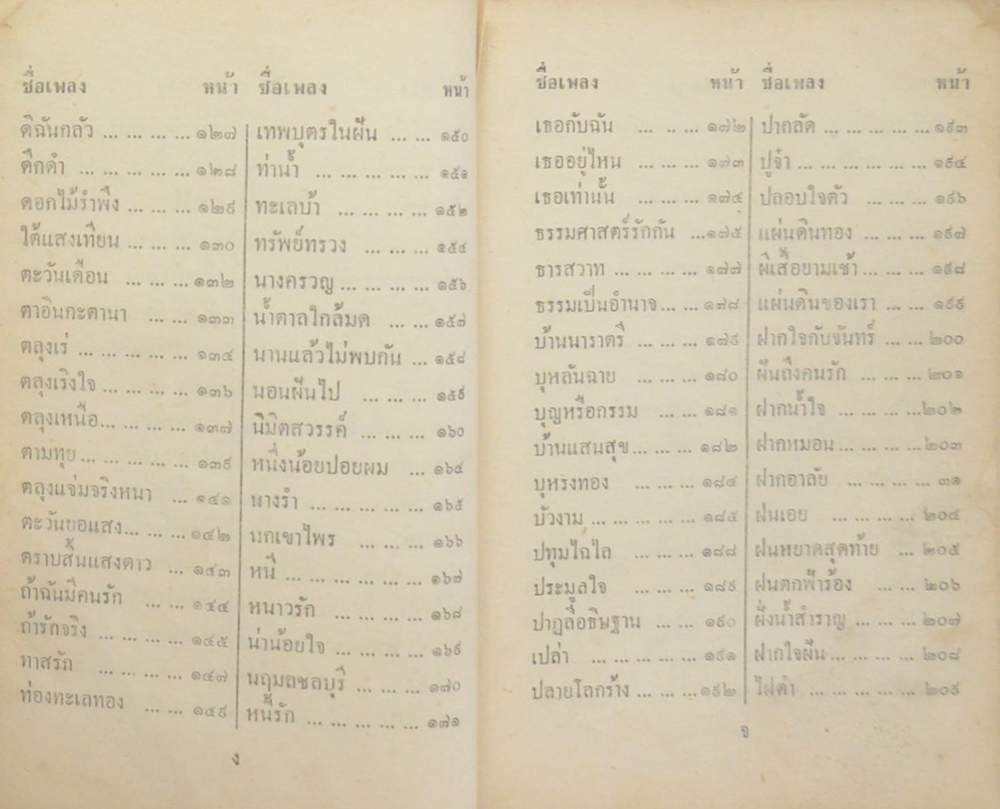 ชื่อเพลง หน้า
ดิฉันกลัว ... ... ... ... ๑๒๗
ดึกดำ ... ... ... ... ... ๑๒๘
ดอกไม้รำพึง ... ... ... ๑๒๙
ใต้แสงเทียน ... ... ... ๑๓๐
ตะวันเดือน ... ... ... ๑๓๒
ตาอินกะตานา ... ... ๑๓๓
ตลุงเร่ ... ... ... ... ... ๑๓๔
ตลุงเริงใจ ... ... ... ... ๑๓๖
ตลุงเหนือ... ... ... ... ๑๓๗
ตามทุย ... ... ... ... ... ๑๓๙
ตลุงแจ่มจริงหนา ... ๑๔๑
ตะวันยอแสง... ... ... ๑๔๒
ตราบสิ้นแสงดาว ... ๑๔๓
ถ้าฉันมีคนรัก ... ... ๑๔๔
ถ้ารักจริง ... ... ... ... ๑๔๕
ทาสรัก ... ... ... ... ๑๔๗
ท่องทะเลทอง ... ... ๑๔๙
ชื่อเพลง หน้า
เทพบุตรในฝัน ... ... ๑๕๐
ท่าน้ำ ... ... ... ... ... ๑๕๑
ทะเลบ้า ... ... ... ... ๑๕๒
ทรัพย์ทรวง ... ... ... ๑๕๔
นางครวญ ... ... ... ... ๑๕๖
น้ำตาลใกล้มด ... ... ๑๕๗
นานแล้วไม่พบกัน ... ๑๕๘
นอนฝันไป ... ... ... ๑๕๙
นิมิตสวรรค์ ... ... ... ๑๖๐
หนึ่งน้อยปอยผม ... ๑๖๔
นางรำ ... ... ... ... ... ๑๖๕
นกเขาไพร ... ... ... ๑๖๖
หนี ... ... ... ... ... ... ๑๖๗
หนาวรัก ... ... ... ... ๑๖๘
น่าน้อยใจ ... ... ... ... ๑๖๙
นฤมลชลบุรี ... ... ... ๑๗๐
หนี้รัก ... ... ... ... ... ๑๗๑
ง
ชื่อเพลง หน้า
เธอกับฉัน ... ... ... ๑๗๒
เธออยู่ไหน ... ... ... ๑๗๓
เธอเท่านั้น ... ... ... ๑๗๔
ธรรมศาสตร์รักกัน ...๑๗๕
ธารสวาท ... ... ... ... ๑๗๗
ธรรมเป็นอำนาจ ... ... ๑๗๘
บ้านนาราตรี ... ... ... ๑๗๙
บุหลันฉาย ... ... ... ๑๘๐
บุญหรือกรรม ... ... ๑๘๑
บ้านแสนสุข ... ... ... ๑๘๒
บุหรงทอง ... ... ... ๑๘๔
บัวงาม ... ... ... ... ... ๑๘๕
ปทุมไฉไล ... ... ... ๑๘๘
ประมูลใจ ... ... ... ๑๘๙
ปาฏลีอธิษฐาน ... ... ๑๙๐
เปล่า ... ... ... ... ... ๑๙๑
ปลายโลกร้าง ... ... ... ๑๙๒
ชื่อเพลง หน้า
ปากลัด ... ... ... ... ... ๑๙๓
ปูจ๋า ... ... ... ... ... ... ๑๙๔
ปลอบใจตัว ... ... ... ๑๙๖
แผ่นดินทอง ... ... ... ๑๙๗
ผีเสื้อยามเช้า ... ... ... ๑๙๘
แผ่นดินของเรา ... ... ๑๙๙
ฝากใจกับจันทร์ ... ... ๒๐๐
ฝันถึงคนรัก ... ... ... ๒๐๑
ฝากน้ำใจ ... ... ... ...๒๐๒
ฝากหมอน ... ... ... ... ๒๐๓
ฝากอาลัย ... ... ... ... ๓๑
ฝนเอย ... ... ... ... ๒๐๔
ฝนหยาดสุดท้าย ... ๒๐๕
ฝนตกฟ้าร้อง ... ... ๒๐๖
ฝั่งน้ำสำราญ ... ... ... ๒๐๗
ฝากใจฝัน ... ... ... ... ๒๐๘
ไฝดำ ... ... ... ... ... ๒๐๙
จ